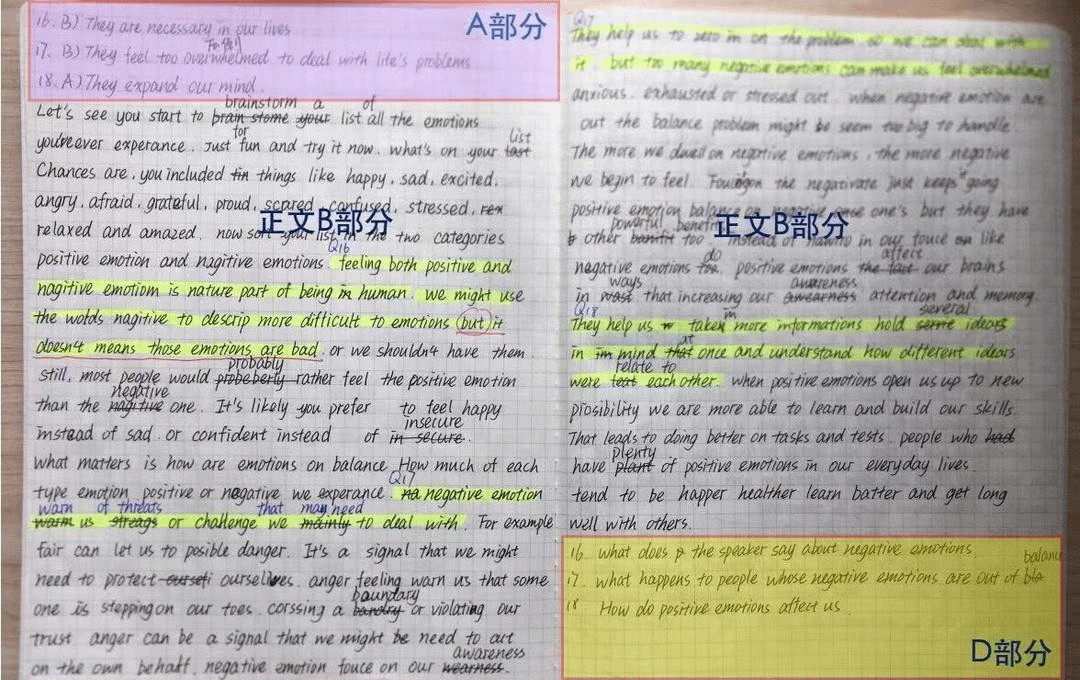 A部分
16. B) They are necessary in our lives
17. B) They feel too overwhelmed to deal with life's problems
18. A) They expand our mind.
brainstorm a of
Let's see you start to brain stome your list all the emotions
for list
you've ever experance. Just fun and try it now. what's on your last
Chances are, you included fin things like happy, sad, excited,
angry, afraid, grateful, proud, scared, confused, stressed, rex
正文B部分
relaxed and amazed. now sort your list in the two categories
Q16
positive emotion and nagitive emotions feeling both positive and
nagitive emotiom is nature part of being in human. we might use
the words nagitive to descrip more difficult to emotions but it
doesn't means those emotions are bad. or we shouldn't have them
probably
still, most people would probeberly rather feel the positive emotion
negative
than the nagitive one. It's likely you prefer to feel happy
insecure
instead of sad. or confident instead of in secure.
What matters is how are emotions on balance. How much of each
Q17
type emotion positive or nagative we experance. na negative emotion
warn of threats that may need
warm us streags or challenge we mainly to deal with. For example
fair can let us to posible danger. It's a signal that we might
need to protect ourselves. anger feeling warn us that some
boundary
one is stepping on our toes. corssing a bandry or violating our
trust anger can be a signal that we might be need to act
awareness
on the own behalf. negative emotion fouce on our wearness.
Q17
They help us to zero in on the problem. so we can deal with
it. but too many negative emotions can make us feel overwhelmed
anxious. exhausted or stressed out. when negative emotion are
out the balance problem might be seem too big to handle.
The more we dwell on negrtive emotions, the more negrtive
we begin to feel. on the negativate just keeps it going
positive emotion balance on negative one's but they have
powerful benefits
other too. instead of in our fouce on like
正文B部分
do affect
nagative emotions positive emotions the fact our brains
ways awareness
in wast that increasing our awearness attention and memory
Q18 in several
They help us taken more informations hold some idears
at
in im mind that once and understand how different idears
relate to
were each other. when positive emotions open us up to new
prosibility we are more able to learn and build our skills.
That leads to doing better on tasks and tests. people who had
plenty
have plant of positive emotions in our everyday lives.
tend to be happer healther learn batter and get long
well with others.
16. what does the speaker say about negative emotions.
balanc
17. what happens to people whose negative emotions are out of bla
18 How do positive emotions affect us.
D部分